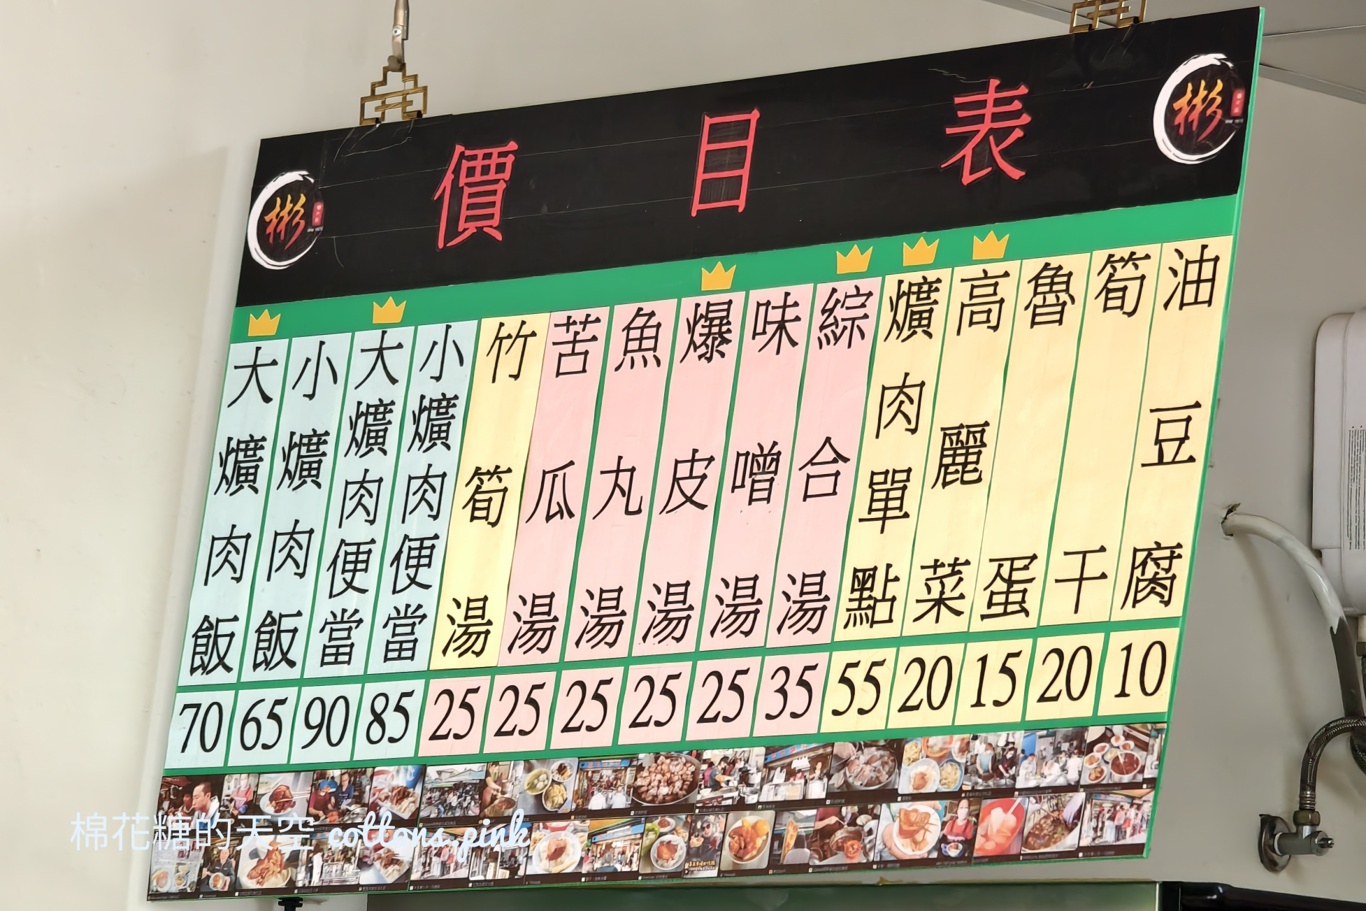 價目表
彬
彬
大爌肉飯 70
小爌肉飯 65
大爌肉便當 90
小爌肉便當 85
竹筍湯 25
苦瓜湯 25
魚丸湯 25
爆皮湯 25
味噌湯 25
綜合湯 35
爌肉單點 55
高麗菜 20
魯蛋 15
筍干 20
油豆腐 10
棉花糖的天空 cottons.pink